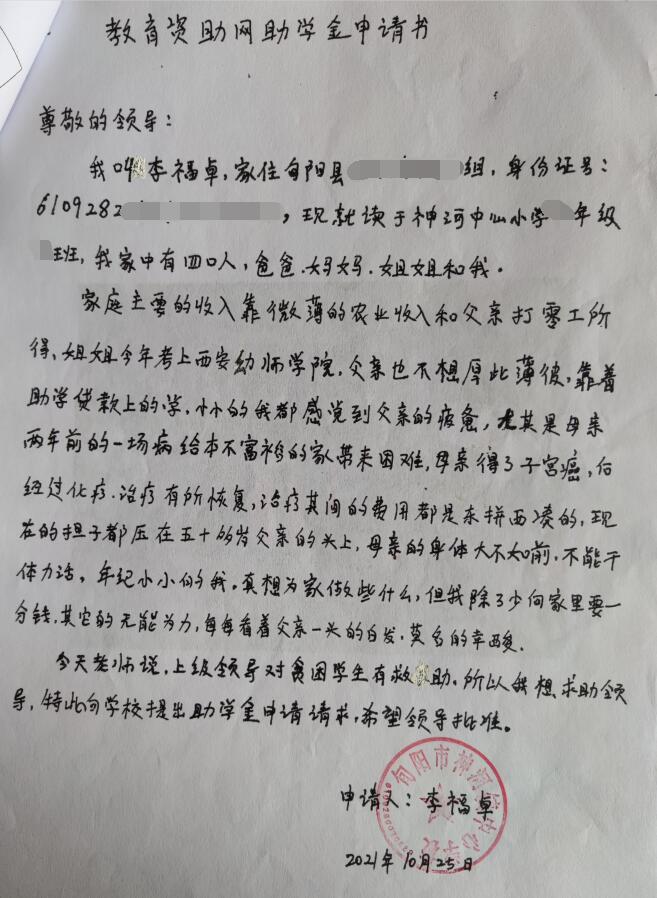 教育资助网助学金申请书
尊敬的领导：
我叫李福卓，家住旬阳县 组，身份证号：
6109282 ，现就读于神河中心小学 年级
班，我家中有四口人，爸爸.妈妈.姐姐和我。
家庭主要的收入靠微薄的农业收入和父亲打零工所
得，姐姐今年考上西安幼师学院，父亲也不想厚此薄彼，靠着
助学贷款上的学，小小的我都感觉到父亲的疲惫，尤其是母亲
两年前的一场病给本不富裕的家带来困难，母亲得了子宫癌，后
经过化疗.治疗有所恢复，治疗其间的费用都是东拼西凑的，现
在的担子都压在五十多岁父亲的头上，母亲的身体大不如前，不能干
体力活，年纪小小的我，真想为家做些什么，但我除了少向家里要一
分钱，其它的无能为力，每每看着父亲一头的白发，莫名的辛酸.
今天老师说，上级领导对贫困学生有救助，所以我想求助领
导，特此向学校提出助学金申请请求，希望领导批准。
申请人：李福卓
2021年10月25日
旬阳市神河镇中心学校